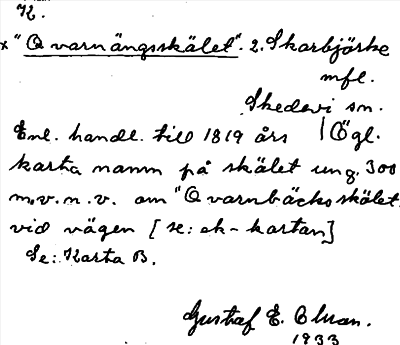 K.
x "Qvarnängsskälet". 2. Skarbjörke
mfl.
Skedevi sn.
Enl. handl. till 1819 års / Ögl.
karta namn på skälet ung. 300
m.v.n.v. om "Qvarnbäcksskälet
vid vägen [se: ek-kartan]
Se: Karta B.
Gustaf E.
1933